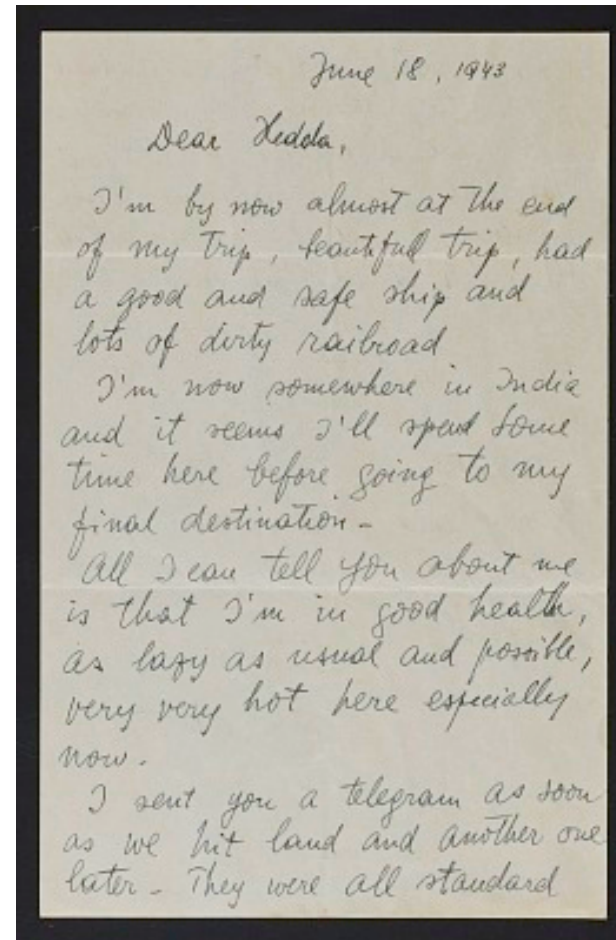 June 18, 1943
Dear Hedda,
I'm by now almost at the end
of my trip, beautiful trip, had
a good and safe ship and
lots of dirty railroad
I'm now somewhere in India
and it seems I'll spend some
time here before going to my
final destination -
All I can tell you about me
is that I'm in good health,
as lazy as usual and possible,
very very hot here especially
now.
I sent you a telegram as soon
as we hit land and another one
later - They were all standard